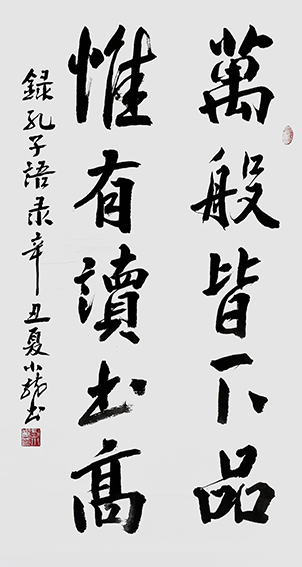 萬般皆下品
惟有讀书高
録孔子語录辛丑夏小我书